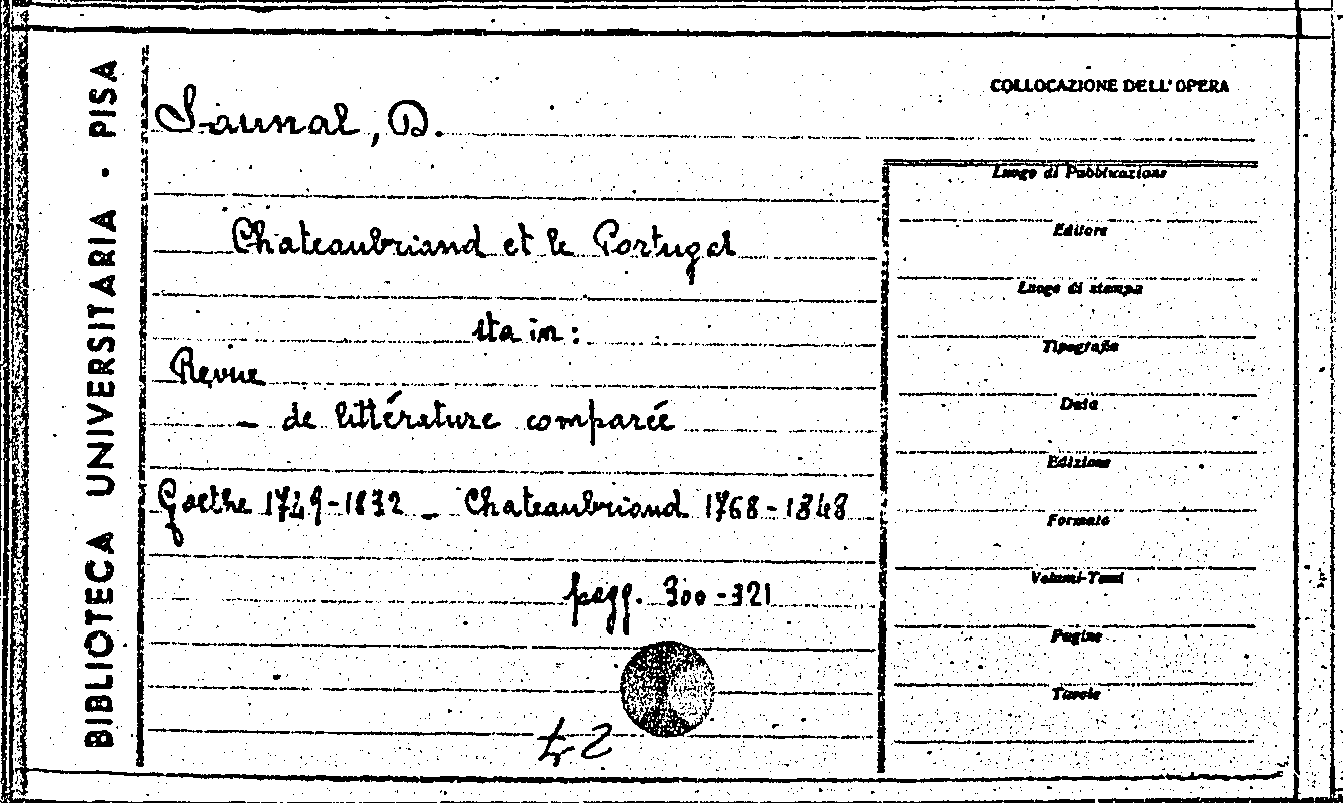 BIBLIOTECA UNIVERSITARIA · PISA
COLLOCAZIONE DELL'OPERA
Saunal, D.
Luogo di Pubblicazione
Chateaubriand et le Portugal
Editore
Luogo di stampa
sta in:
Tipografia
Revue
Data
– de littérature comparée
Edizione
Goethe 1749-1832 – Chateaubriand 1768-1848
Formato
Volumi-Tomi
pagg. 300-321
Pagine
Tavole